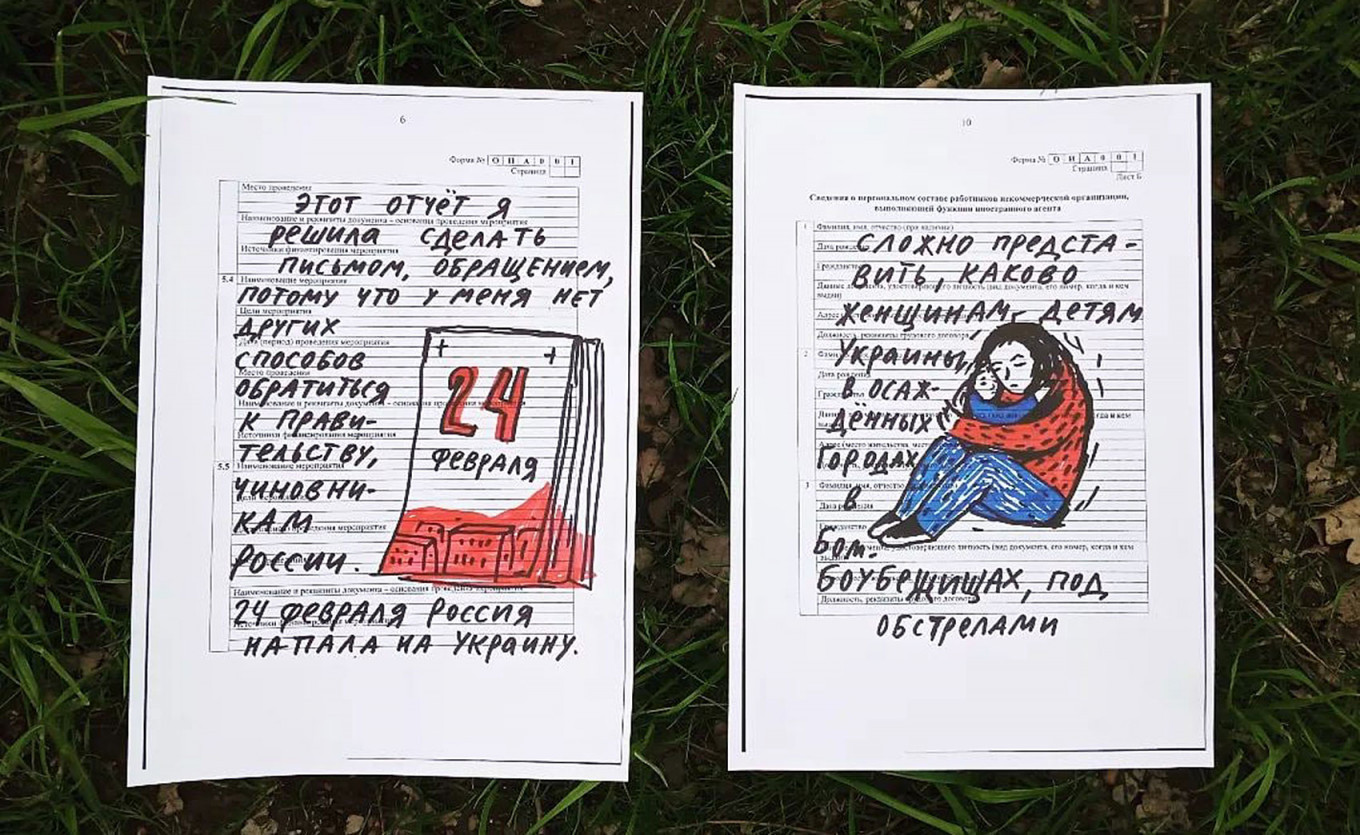 6
Форма № О И А 0 0 1
Страница
Место проведения
ЭТОТ ОТЧЁТ Я
Наименование и реквизиты документа – основания проведения мероприятия
РЕШИЛА СДЕЛАТЬ
Источники финансирования мероприятия
ПИСЬМОМ, ОБРАЩЕНИЕМ,
5.4 Наименование мероприятия
ПОТОМУ ЧТО У МЕНЯ НЕТ
Цели мероприятия
ДРУГИХ
Дата (период) проведения мероприятия
СПОСОБОВ
Место проведения
ОБРАТИТЬСЯ
Наименование и реквизиты документа – основания
К ПРАВИ-
Источники финансирования мероприятия
ТЕЛЬСТВУ,
5.5 Наименование мероприятия
ЧИНОВНИ-
КАМ
проведения мероприятия
РОССИИ.
24
ФЕВРАЛЯ
Наименование и реквизиты документа – основания проведения мероприятия
24 ФЕВРАЛЯ РОССИЯ
НАПАЛА НА УКРАИНУ.
10
Форма № О И А 0 0 1
Страница
Лист Б
Сведения о персональном составе работников некоммерческой организации,
выполняющей функции иностранного агента
1 Фамилия, имя, отчество (при наличии)
СЛОЖНО ПРЕДСТА-
Дата рождения
Гражданство
ВИТЬ, КАКОВО
Данные документа, удостоверяющего личность (вид документа, его номер, когда и кем
выдан)
ЖЕНЩИНАМ, ДЕТЯМ
Должность, реквизиты трудового договора
2
УКРАИНЫ,
Дата рождения
В ОСАЖ-
ДЁННЫХ
ГОРОДАХ
3
В
Дата рождения
Гражданство
БОМ-
удостоверяющего личность (вид документа, его номер, когда и кем
БОУБЕЩИЩАХ, ПОД
Должность, реквизиты трудового договора
ОБСТРЕЛАМИ